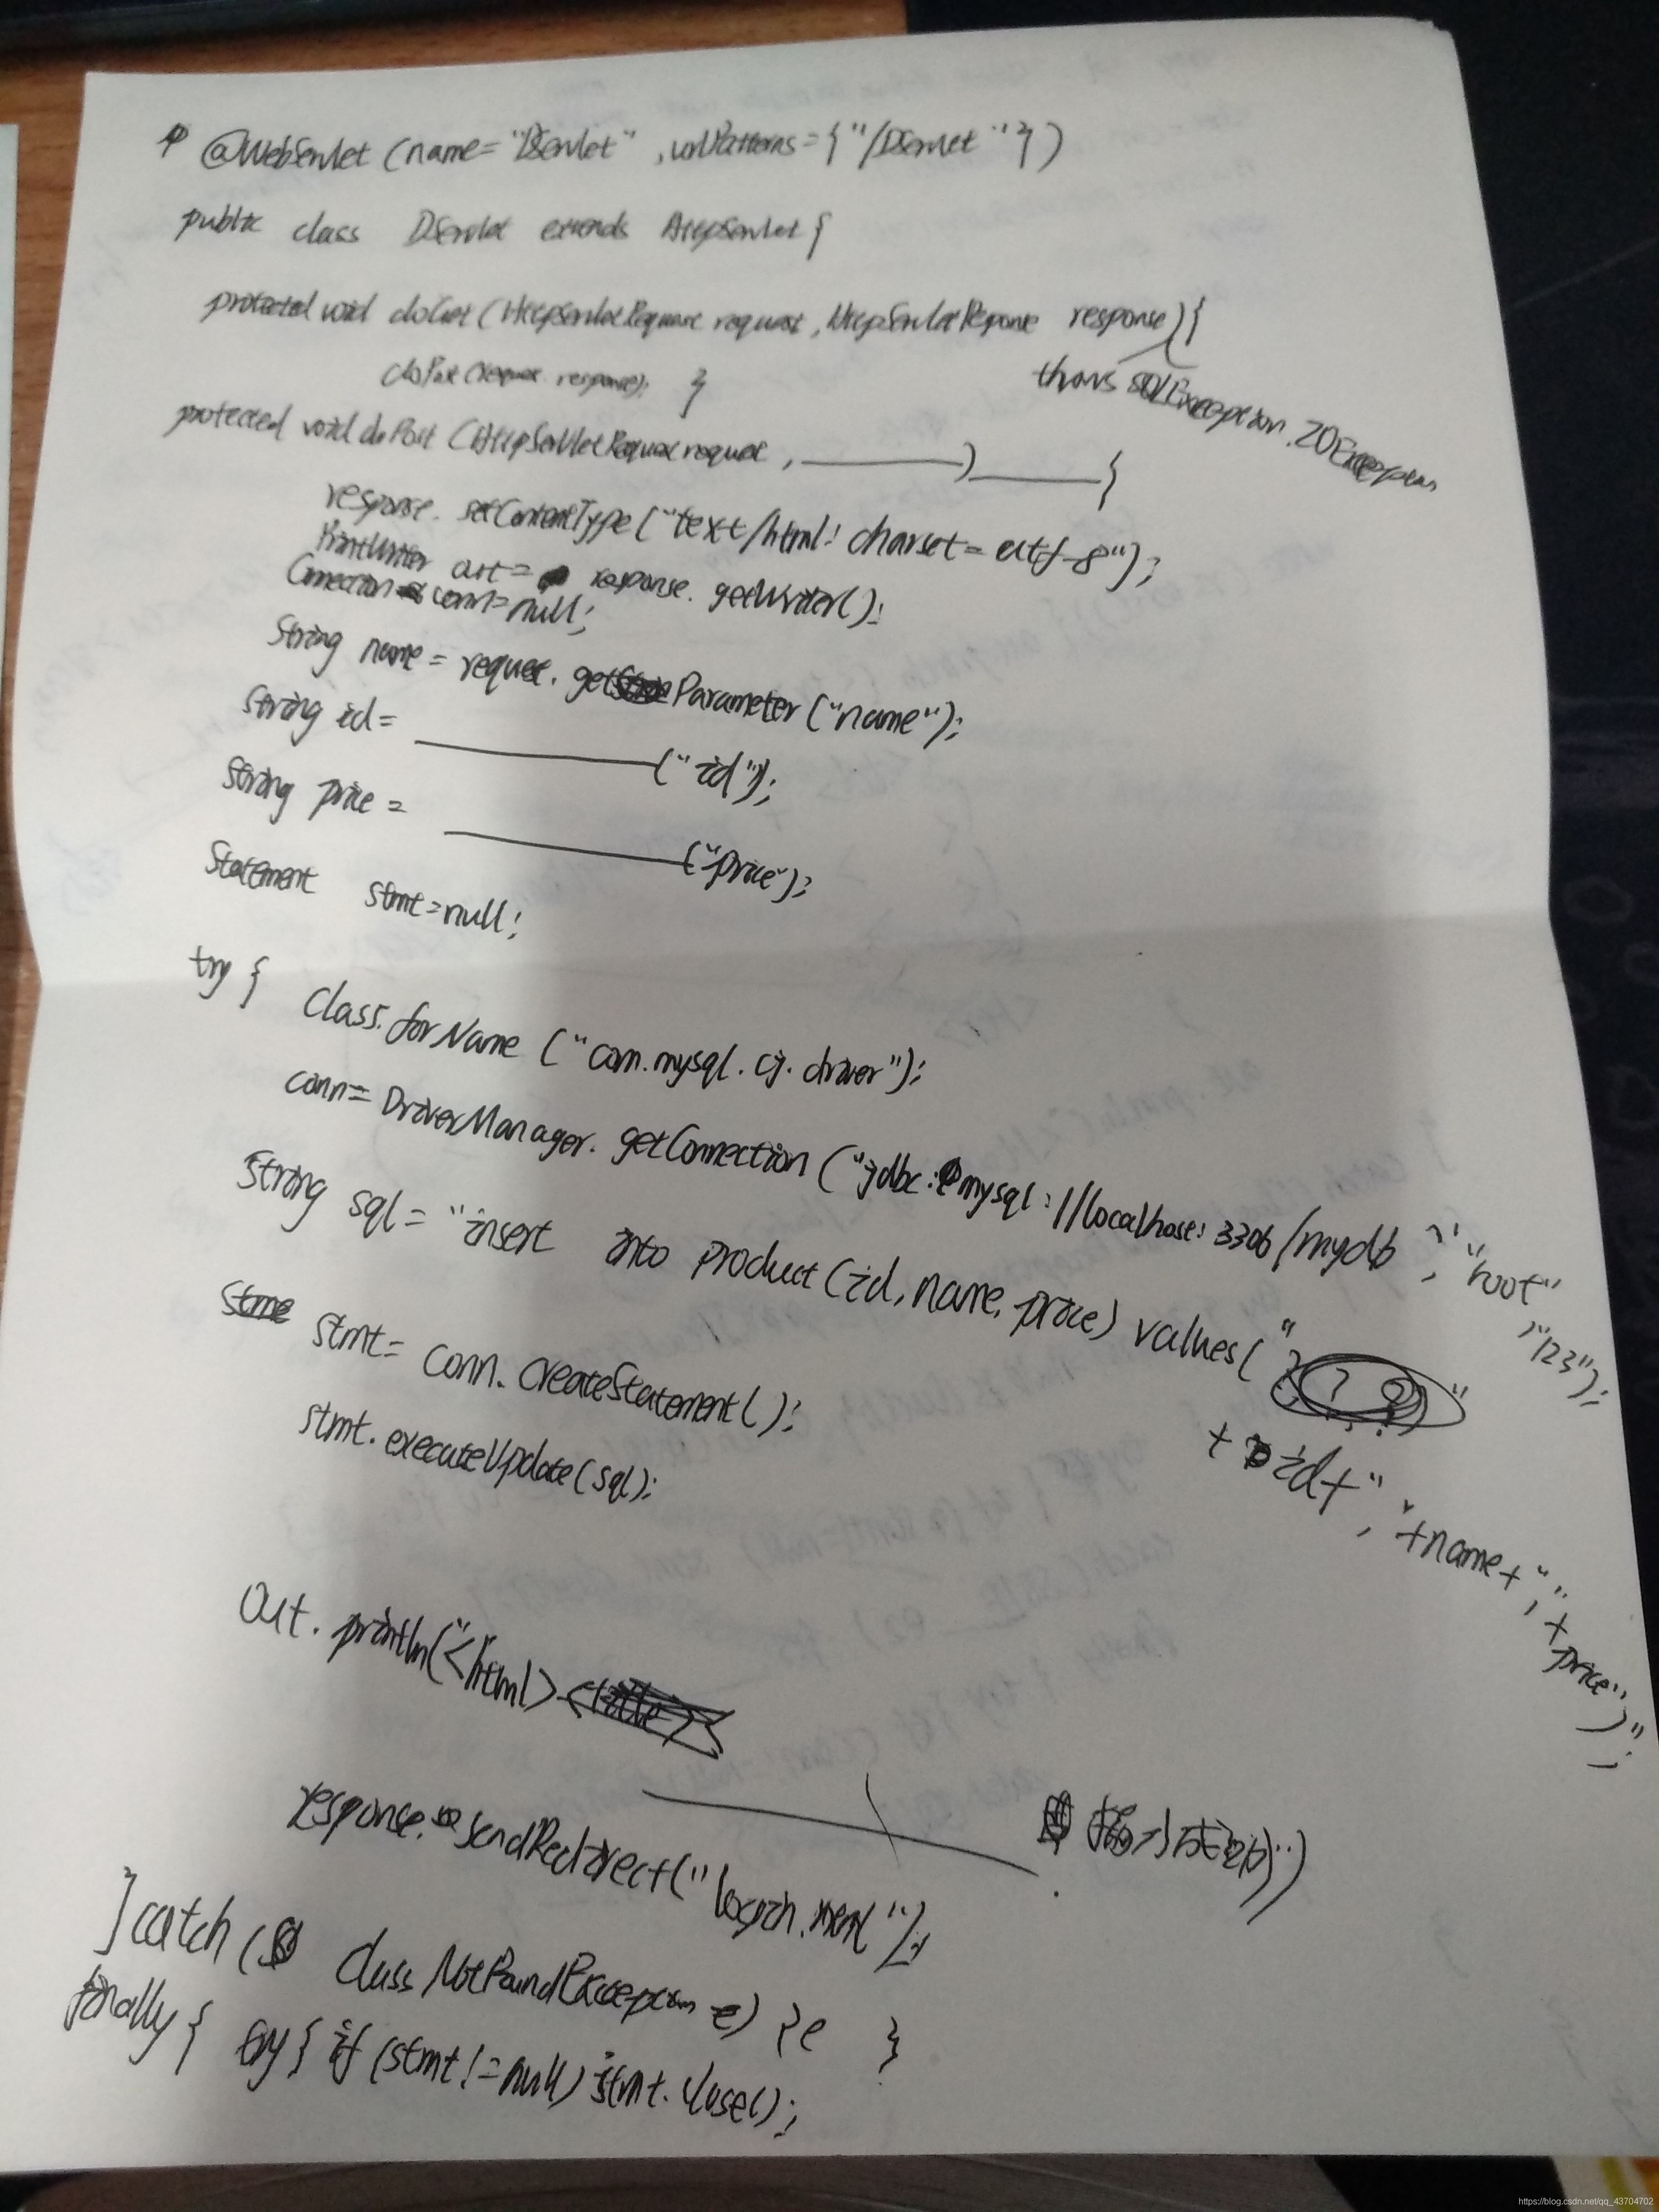 @WebServlet (name="DServlet", urlPatterns={"/DServlet"})
public class DServlet extends HttpServlet {
protected void doGet (HttpServletRequest request, HttpServletResponse response) {
throws SQLException, IOException
doPost (request, response); }
protected void doPost (HttpServletRequest request, ————) ———— {
response. setContentType ("text/html; charset=utf-8");
PrintWriter out = response. getWriter();
Connection conn=null;
String name = request. getParameter ("name");
String id= ———— ("id");
String price = ———— ("price");
Statement stmt=null;
try { Class. forName ("com.mysql.cj.driver");
conn= DriverManager. getConnection ("jdbc:mysql://localhost:3306/mydb", "root", "123");
String sql= "insert into product (id, name, price) values("
+id+","+name+","+price")";
stmt= conn. createStatement();
stmt. executeUpdate(sql);
out. println("<html>
response. sendRedirect("login.html");
} catch ( ClassNotFoundException e) {e }
finally { try { if (stmt!=null) stmt. close();
https://blog.csdn.net/qq_43704702